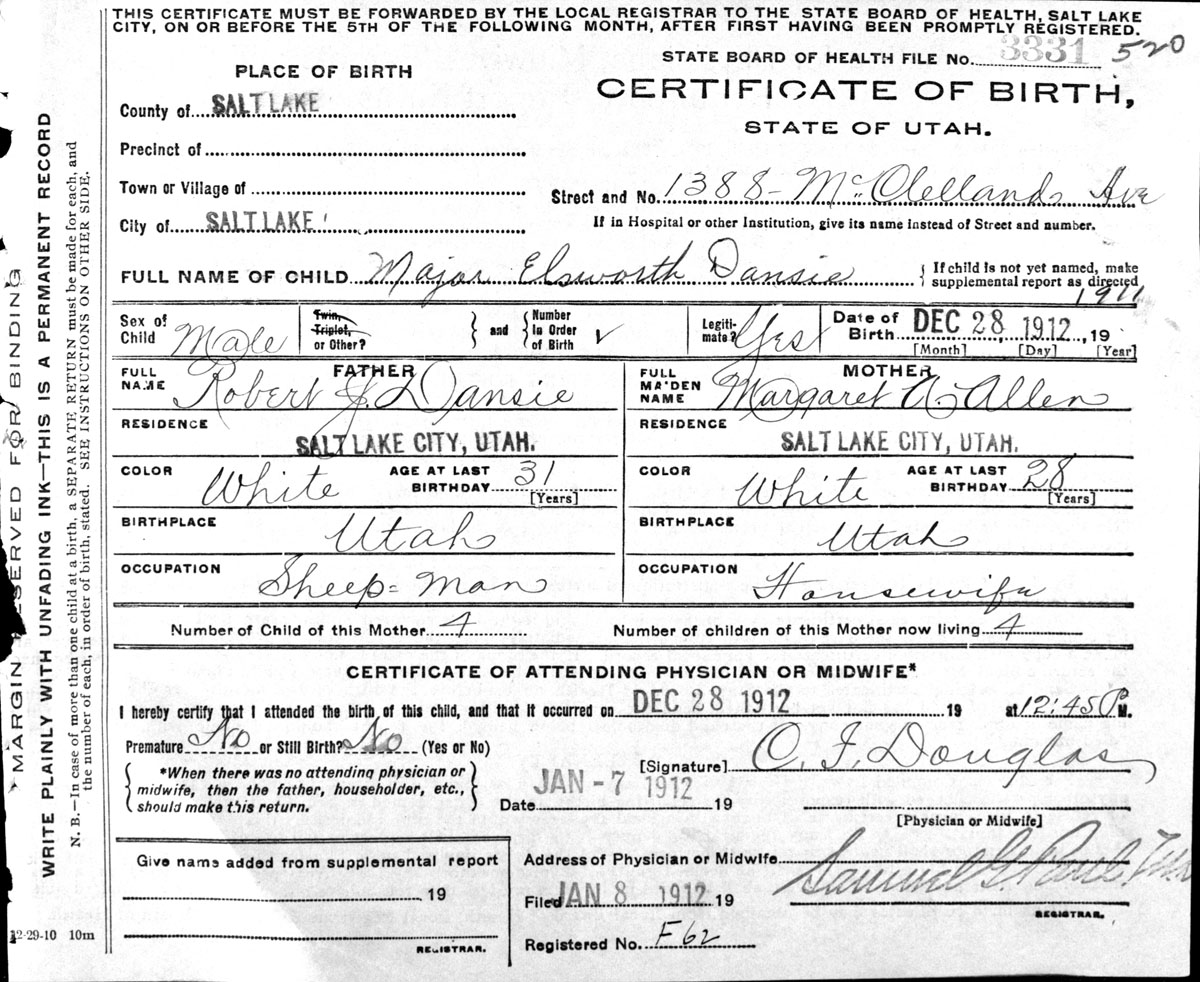 THIS CERTIFICATE MUST BE FORWARDED BY THE LOCAL REGISTRAR TO THE STATE BOARD OF HEALTH, SALT LAKE
CITY, ON OR BEFORE THE 5TH OF THE FOLLOWING MONTH, AFTER FIRST HAVING BEEN PROMPTLY REGISTERED.
PLACE OF BIRTH
STATE BOARD OF HEALTH FILE No. 3331 520
CERTIFICATE OF BIRTH,
STATE OF UTAH.
County of SALT LAKE
Precinct of
Town or Village of
Street and No. 1388 - McClelland Ave
City of SALT LAKE
If in Hospital or other Institution, give its name instead of Street and number.
FULL NAME OF CHILD Major Elsworth Dansie
If child is not yet named, make
supplemental report as directed
1911
Sex of Child Male
Twin, Triplet, or Other?
and
Number In Order of Birth
Legiti-mate? Yes
Date of Birth DEC 28 1912, 19
[Month] [Day] [Year]
FATHER
FULL NAME Robert J. Dansie
MOTHER
FULL MAIDEN NAME Margaret A Allen
RESIDENCE SALT LAKE CITY, UTAH.
RESIDENCE SALT LAKE CITY, UTAH.
COLOR White AGE AT LAST BIRTHDAY 31 [Years]
COLOR White AGE AT LAST BIRTHDAY 28 [Years]
BIRTHPLACE Utah
BIRTHPLACE Utah
OCCUPATION Sheep=Man
OCCUPATION Housewife
Number of Child of this Mother 4 Number of children of this Mother now living 4
CERTIFICATE OF ATTENDING PHYSICIAN OR MIDWIFE*
I hereby certify that I attended the birth of this child, and that it occurred on DEC 28 1912 19 at 12:45 P M.
Premature No or Still Birth? No (Yes or No)
*When there was no attending physician or
midwife, then the father, householder, etc.,
should make this return.
[Signature] C. F. Douglas
Date JAN -7 1912 19
[Physician or Midwife]
Give name added from supplemental report
19
REGISTRAR.
Address of Physician or Midwife
Filed JAN 8 1912 19
Samuel G. Paul
REGISTRAR.
Registered No. F62
12-29-10 10m
MARGIN RESERVED FOR BINDING
WRITE PLAINLY WITH UNFADING INK—THIS IS A PERMANENT RECORD
N. B.—In case of more than one child at a birth, a SEPARATE RETURN must be made for each, and
the number of each, in order of birth, stated. SEE INSTRUCTIONS ON OTHER SIDE.